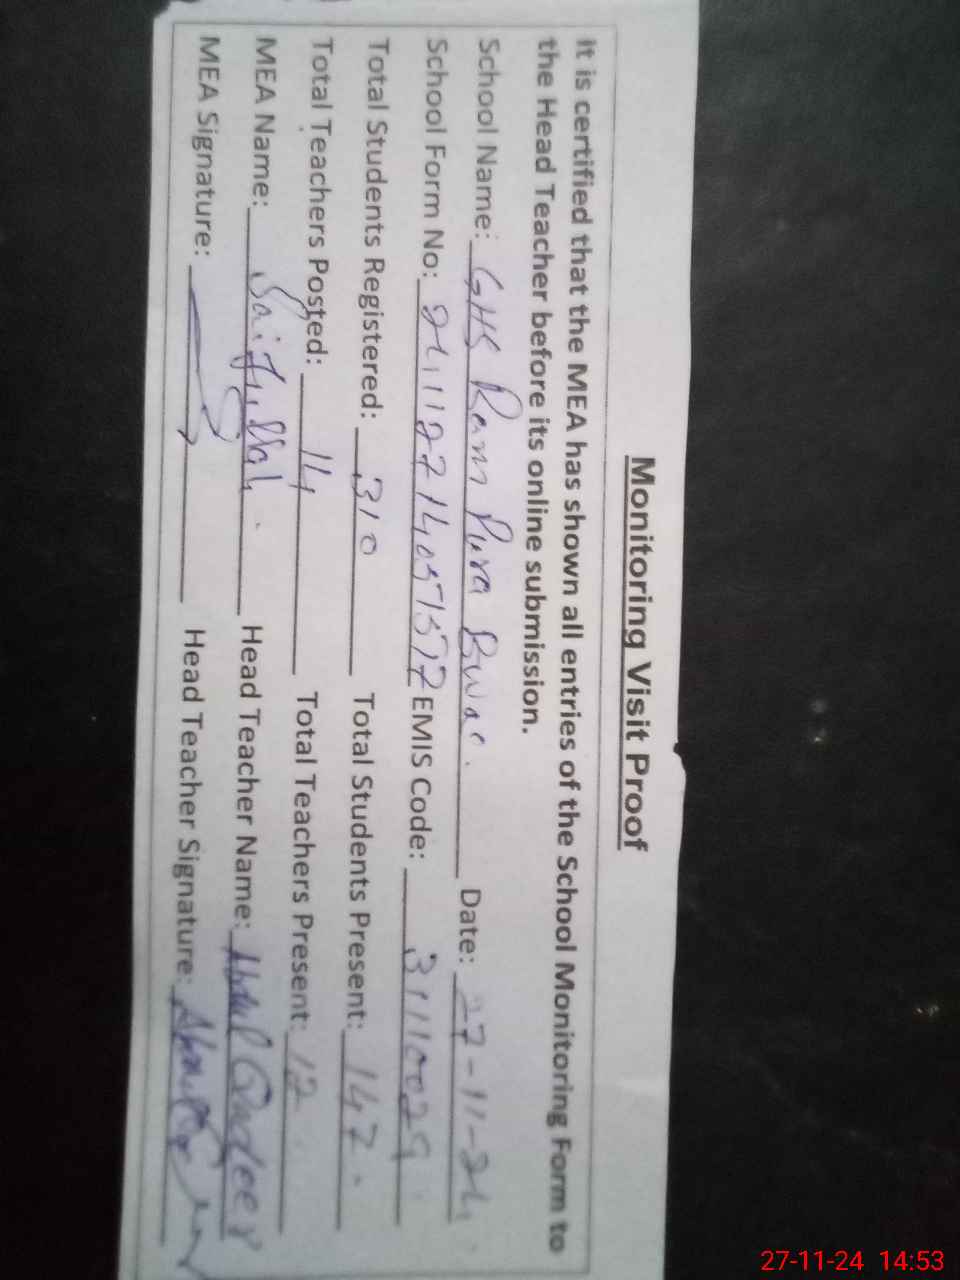 Monitoring Visit Proof
It is certified that the MEA has shown all entries of the School Monitoring Form to
the Head Teacher before its online submission.
School Name: GHS Ram Pura Date: 27-11-24
School Form No: EMIS Code: 31110029
Total Students Registered: 310 Total Students Present: 147.
Total Teachers Posted: 14 Total Teachers Present: 12
MEA Name: Saifullah. Head Teacher Name: Abdul Qadeer
MEA Signature: Head Teacher Signature:
27-11-24 14:53